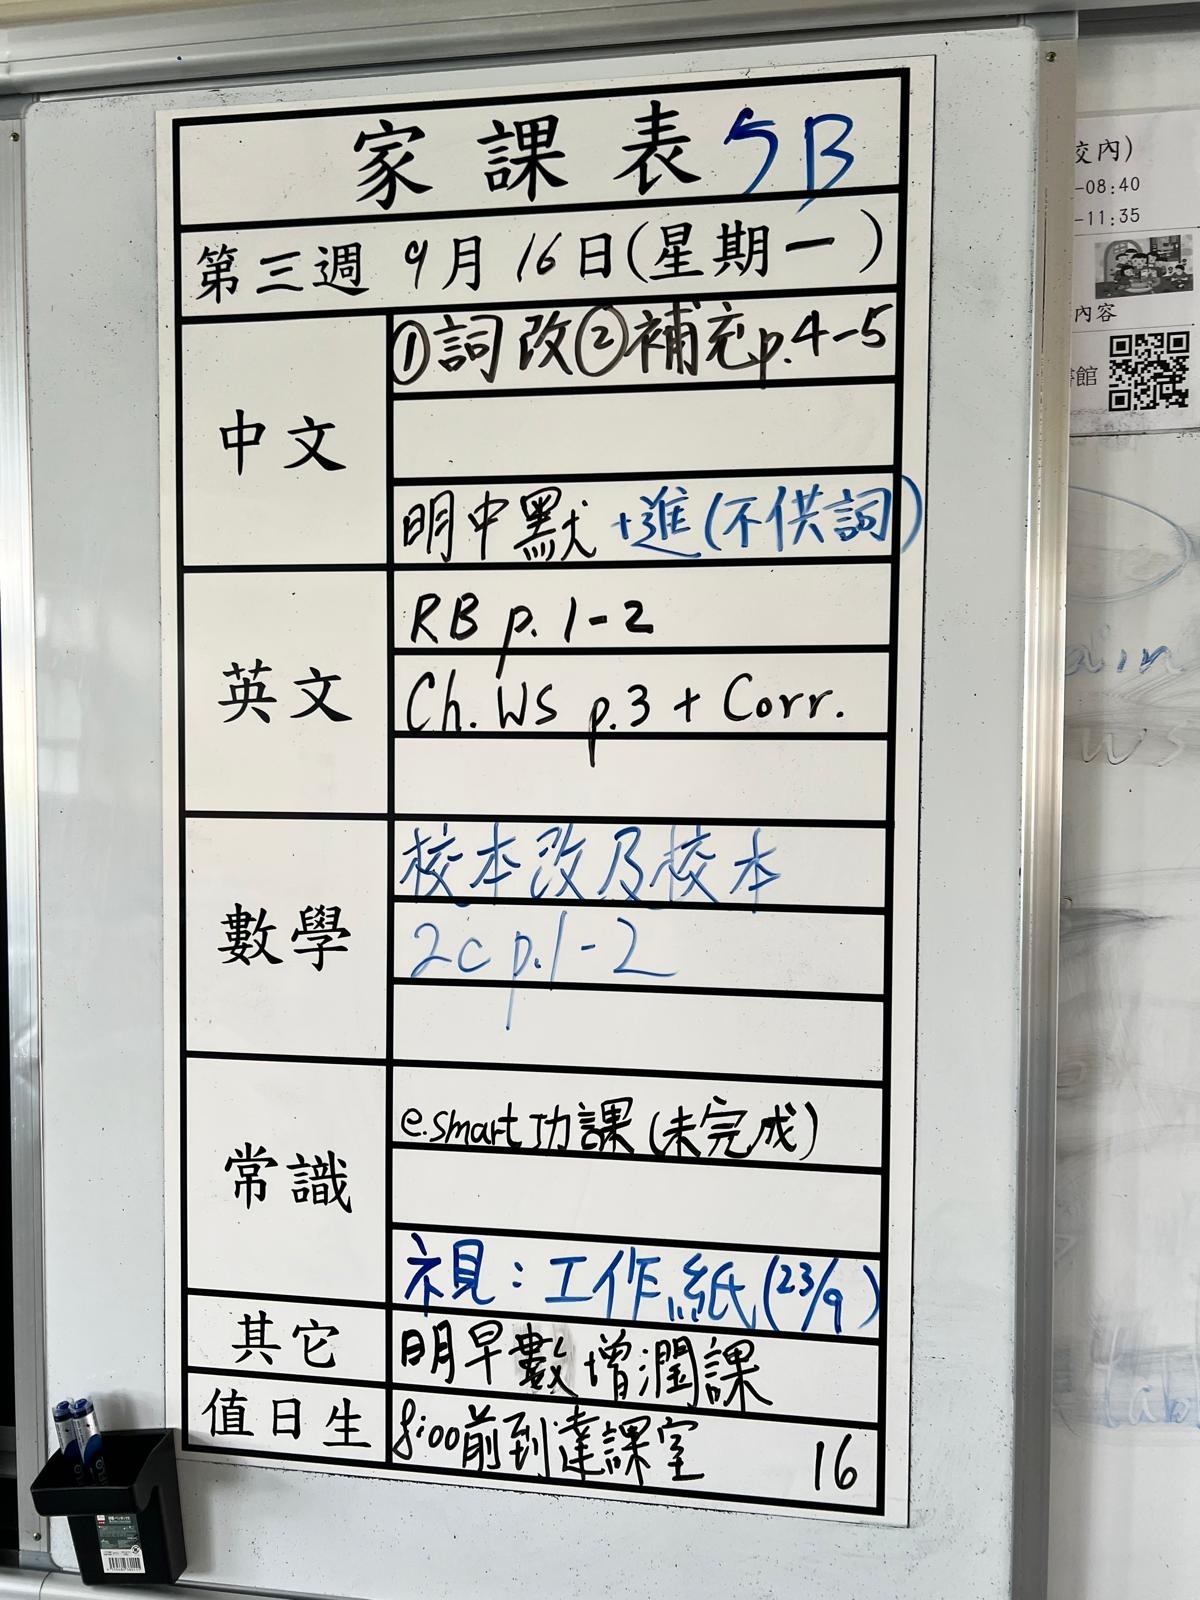 家課表 5B
第三週 9月16日(星期一)
中文
①詞改②補充p.4-5
明中默 +進(不供詞)
英文
RB p.1-2
Ch. WS p.3 + Corr.
數學
校本改及校本
2C p.1-2
常識
e.smart功課(未完成)
視：工作紙(23/9)
其它
明早數增潤課
值日生
8:00前到達課室 16
校內)
-08:40
-11:35
內容
館